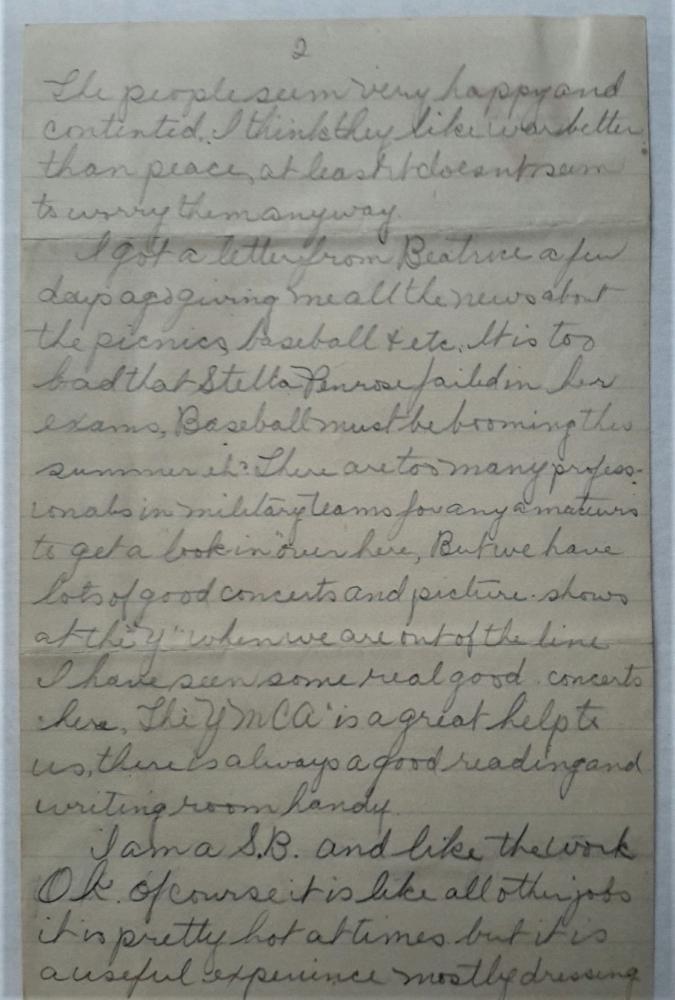 2
The people seem very happy and
contented. I think they like war better
than peace, at least it doesnt seem
to worry them anyway.
I got a letter from Beatrice a few
days ago giving me all the news about
the picnics, baseball & etc. It is too
bad that Stella Penrose failed in her
exams, Baseball must be booming this
summer eh? There are too many profess-
ionals in military teams for any amateurs
to get a look in over here, But we have
lots of good concerts and picture shows
at the "Y" when we are out of the line
I have seen some real good concerts
here, The YMCA is a great help to
us, there is always a good reading and
writing room handy.
I am a S.B. and like the work
O.K. of course it is like all other jobs
it is pretty hot at times but it is
a useful experience mostly dressing